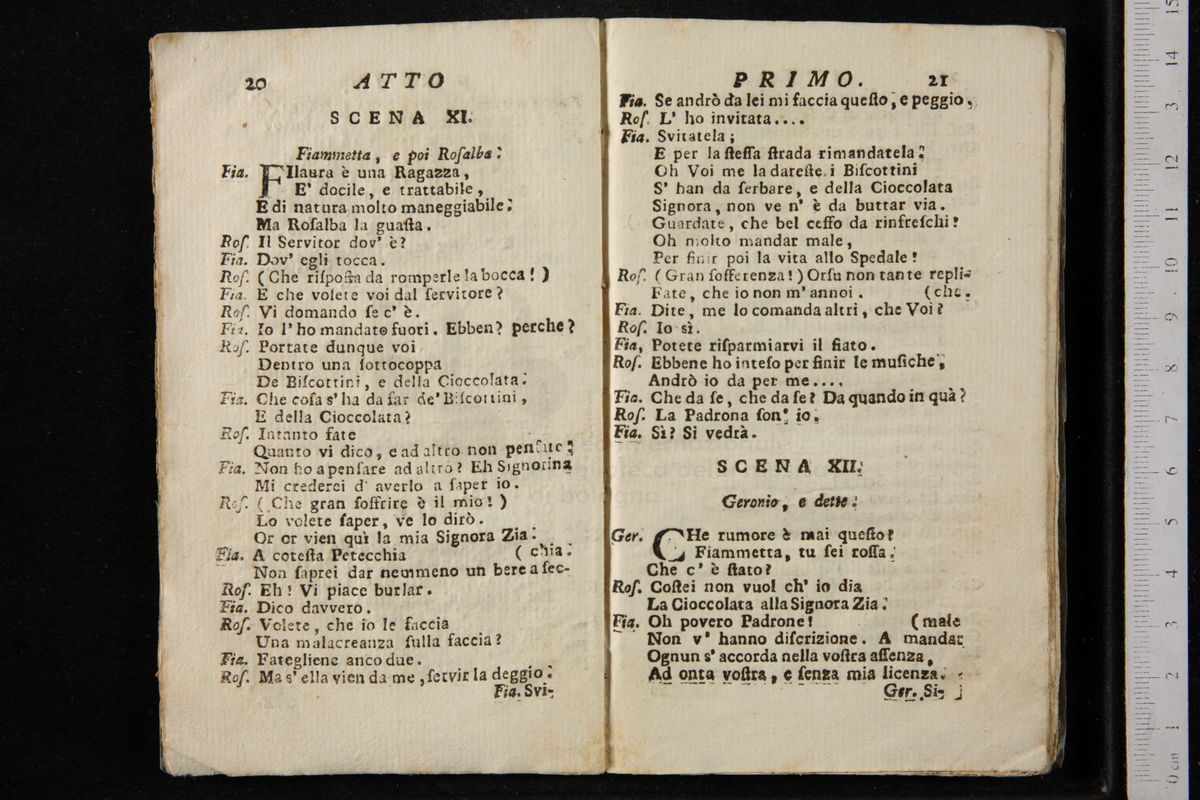 20 ATTO
SCENA XI.
Fiammetta, e poi Roſalba.
Fia. FIlaura è una Ragazza,
E' docile, e trattabile,
E di natura molto maneggiabile.
Ma Roſalba la guaſta.
Roſ. Il Servitor dov' è?
Fia. Dov' egli tocca.
Roſ. (Che riſpoſta da romperle la bocca!)
Fia. E che volete voi dal ſervitore?
Roſ. Vi domando ſe c' è.
Fia. Io l' ho mandato fuori. Ebben? perche?
Roſ. Portate dunque voi
Dentro una ſottocoppa
De Biſcottini, e della Cioccolata.
Fia. Che coſa s' ha da far de' Biſcottini,
E della Cioccolata?
Roſ. Intanto fate
Quanto vi dico, e ad altro non penſate.
Fia. Non ho a penſare ad altro? Eh Signorina
Mi crederei d' averlo a ſaper io.
Roſ. (Che gran ſoffrire è il mio!)
Lo volete ſaper, ve lo dirò.
Or or vien quì la mia Signora Zia.
Fia. A coteſta Petecchia (chia.
Non ſaprei dar nemmeno un bere a ſec-
Roſ. Eh! Vi piace burlar.
Fia. Dico davvero.
Roſ. Volete, che io le faccia
Una malacreanza ſulla faccia?
Fia. Fategliene anco due.
Roſ. Ma s' ella vien da me, ſervir la deggio.
Fia. Svi-
PRIMO. 21
Fia. Se andrò da lei mi faccia queſto, e peggio,
Roſ. L' ho invitata....
Fia. Svitatela;
E per la ſteſſa ſtrada rimandatela.
Oh Voi me la dareſte. i Biſcottini
S' han da ſerbare, e della Cioccolata
Signora, non ve n' è da buttar via.
Guardate, che bel ceffo da rinfreſchi!
Oh molto mandar male,
Per finir poi la vita allo Spedale!
Roſ. (Gran ſofferenza!) Orſu non tante repli-
Fate, che io non m' annoi. (che.
Fia. Dite, me lo comanda altri, che Voi?
Roſ. Io sì.
Fia, Potete riſparmiarvi il fiato.
Roſ. Ebbene ho inteſo per finir le muſiche,
Andrò io da per me....
Fia. Che da ſe, che da ſe? Da quando in quà?
Roſ. La Padrona ſon' io.
Fia. Sì? Si vedrà.
SCENA XII.
Geronio, e dette.
Ger. CHe rumore è mai queſto?
Fiammetta, tu ſei roſſa.
Che c' è ſtato?
Roſ. Coſtei non vuol ch' io dia
La Cioccolata alla Signora Zia.
Fia. Oh povero Padrone! (male
Non v' hanno diſcrizione. A mandar
Ognun s' accorda nella voſtra aſſenza,
Ad onta voſtra, e ſenza mia licenza.
Ger. Si-